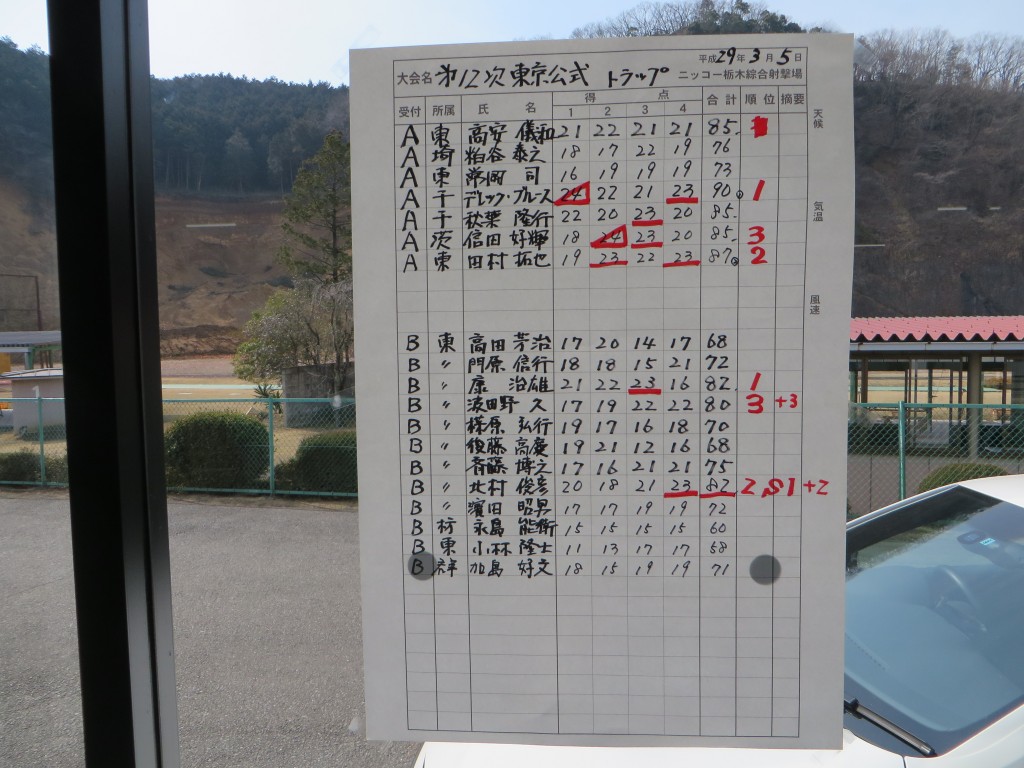 平成29年3月5日
大会名 第12次東京公式 トラップ ニッコー栃木綜合射撃場
受付 所属 氏名 得点 1 2 3 4 合計 順位 摘要
A 東 高安 儀和 21 22 21 21 85
A 埼 粕谷 泰之 18 17 22 19 76
A 東 常岡 司 16 19 19 19 73
A 千 デレック・ブルース 24 22 21 23 90 1
A 千 秋葉 隆行 22 20 23 20 85
A 茨 信田 好輝 18 24 23 20 85 3
A 東 田村 拓也 19 23 22 23 87 2
B 東 高田 芳治 17 20 14 17 68
B 〃 門原 信行 18 18 15 21 72
B 〃 康 治雄 21 22 23 16 82 1
B 〃 波田野 久 17 19 22 22 80 3 +3
B 〃 榛原 弘行 19 17 16 18 70
B 〃 後藤 高慶 19 21 12 16 68
B 〃 斉藤 博之 17 16 21 21 75
B 〃 北村 俊彦 20 18 21 23 82 2 S1+2
B 〃 濱田 昭男 17 17 19 19 72
B 栃 永島 能衛 15 15 15 15 60
B 東 小林 隆士 11 13 17 17 58
B 群 加島 好文 18 15 19 19 71
天候
気温
風速